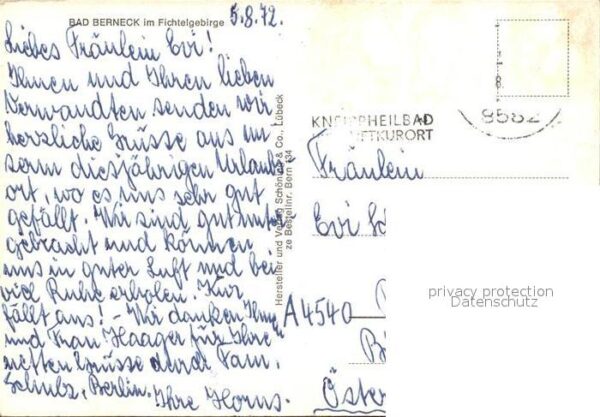 BAD BERNECK im Fichtelgebirge
5.8.72.
Liebes Fräulein Evi!
Ihnen und Ihren lieben
Verwandten senden wir
herzliche Grüsse aus un
serm diesjährigen Urlaubs-
ort, wo es uns sehr gut
gefällt. Wir sind gut unter-
gebracht und können
uns in guter Luft und bei
viel Ruhe erholen. Kur
fällt aus! - Wir danken Ihnen
und Frau Haager für Ihre
netten Grüsse durch Fam.
Schulz, Berlin. Ihre Horns.
Hersteller und Verlag Schöning & Co., Lübeck
ze Bestellnr. Bern 434
KNEIPPHEILBAD
LUFTKURORT
8582
Fräulein
Evi
privacy protection
Datenschutz
A4540
Öster